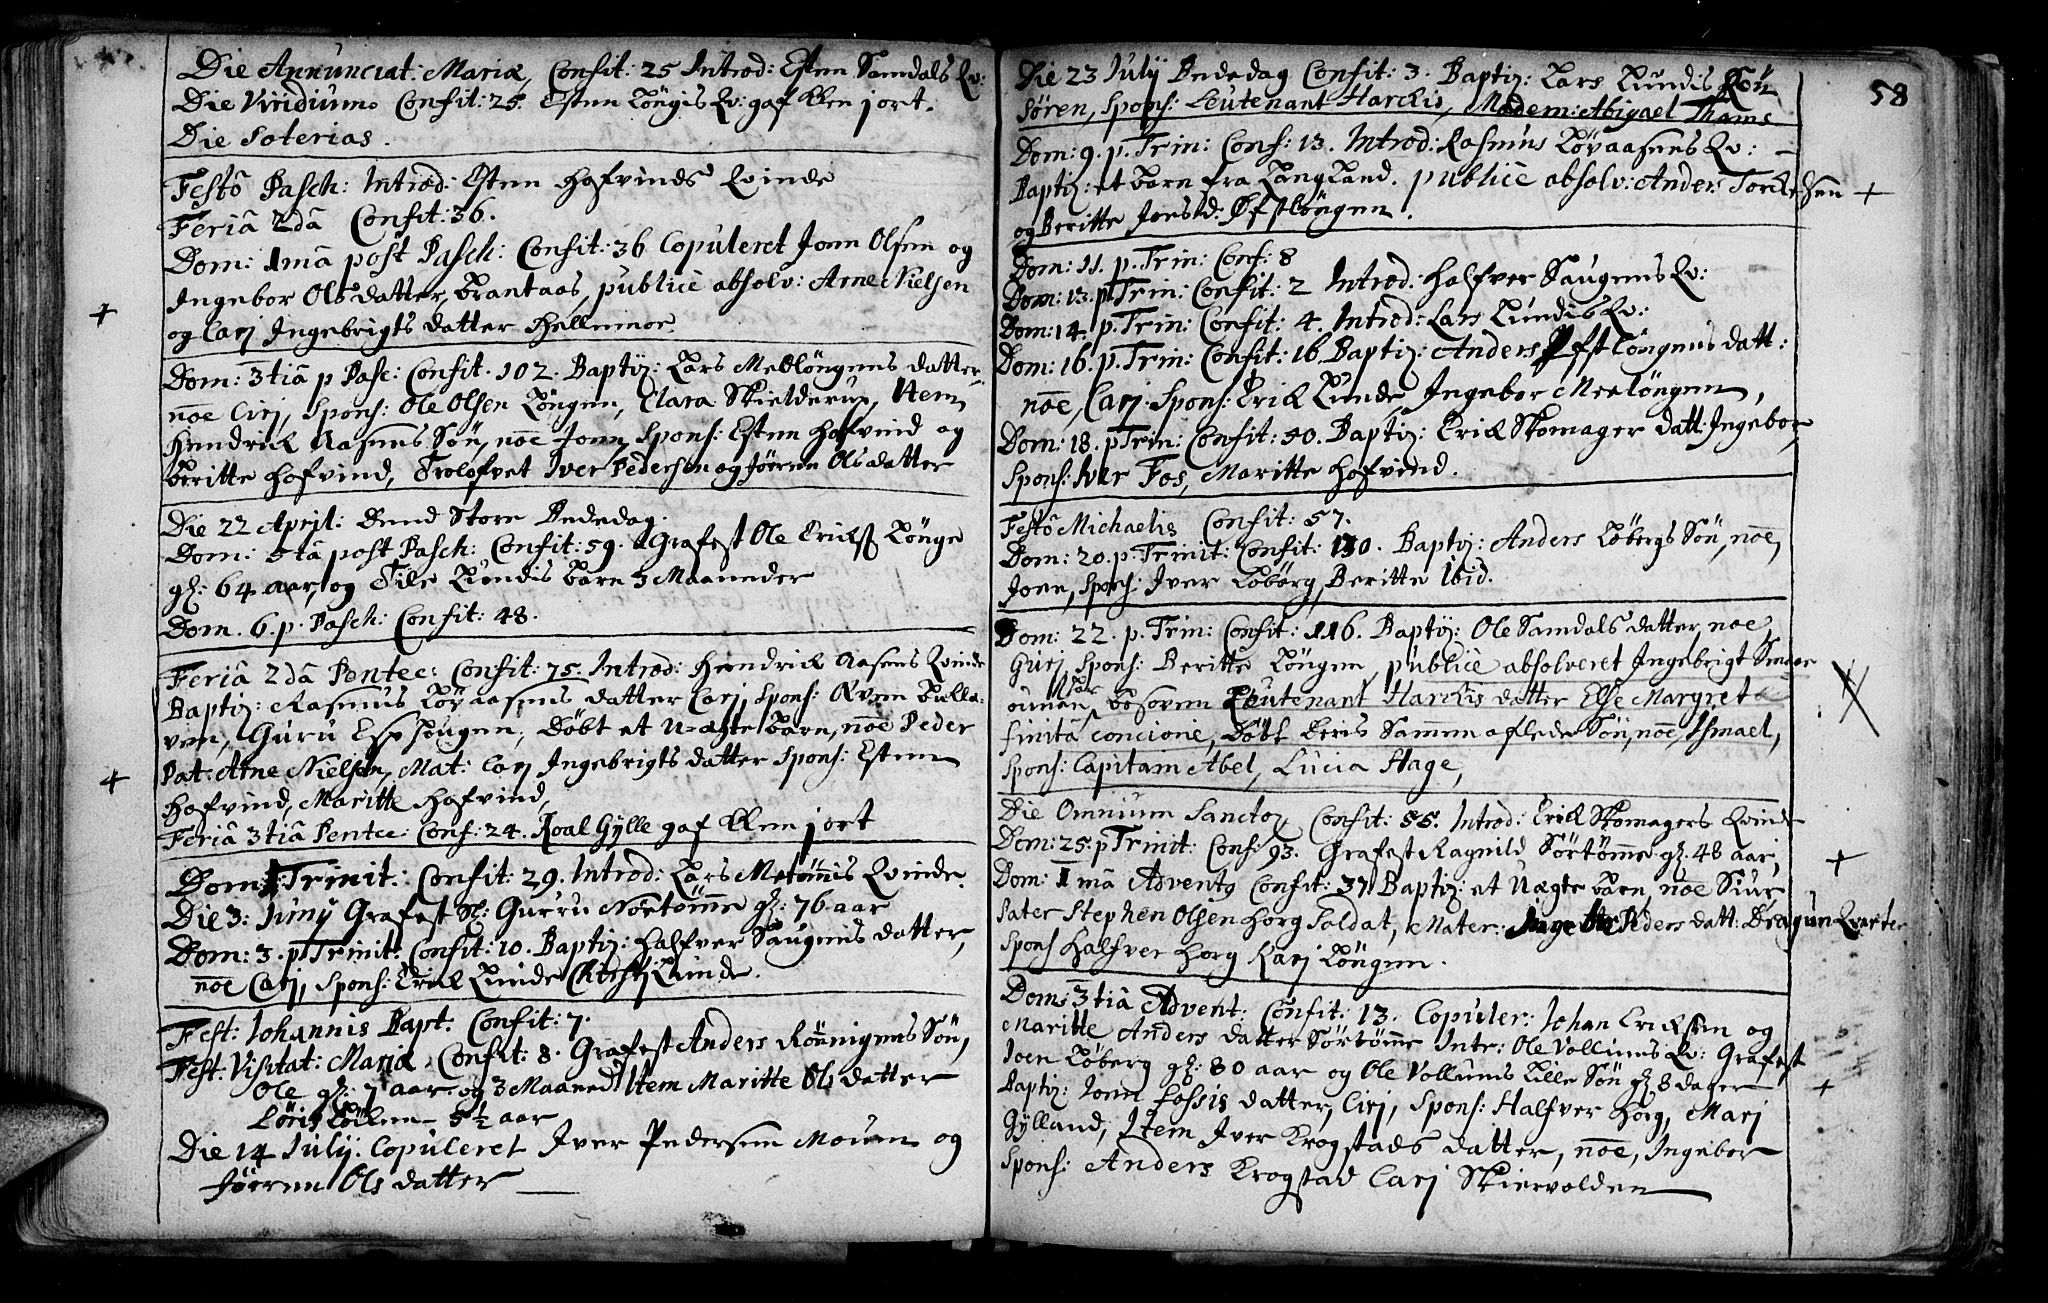 Die Annunciat: Mariæ, Confit: 25 Introd: Esten Samdals Qv:
Die Viridium. Confit: 25. Esten Löngis Qv: gaf Klen jort.
Die Soterias.
Festô Pasch: Introd: Esten Hofvinds Qvinde
Feriâ 2dâ Confit: 36.
Dom: 1mâ post Pasch: Confit: 36 Copuleret Jonn Olsen og
Ingebor Olsdatter, publicè absolv: Arne Nielsen
og Carj Ingebrigts datter Hellemoe
Dom: 3tiâ p Pasc: Confit. 102. Baptiz: Lars Medlöngens datter
noe Cirj, Spons: Ole Olsen Löngen, Clara Skielderup, Item
Hendrich Aasens Sön, noe Jonn, Spons: Esten Hofvind og
Beritte Hofvind, Trolofvet Iver Pedersen og Jöeren Olsdatter
Die 22 April: Dend Store Bededag.
Dom: 5tâ post Pasch: Confit: 59. Grafest Ole Lönge
gl: 64 aar, og Lundis Barn 3 Maaneder
Dom. 6. p. Pasch: Confit: 48.
Feriâ 2dâ Pentec: Confit: 75. Introd: Hendrich Aasens Qvinde
Baptiz: Rasmus Lövaasens datter Carj, Spons:
ven, Guru Esphougen, Döbt et U-ægte Barn, noe Peder
Pat: Arne Nielsen, Mat: Carj Ingebrigts datter Spons: Esten
Hofvind, Maritte Hofvind,
Feriâ 3tiâ Pentec: Conf: 24. Roal Gylle gaf Klen jort
Dom: Trinit: Confit: 29. Introd: Lars Qvinde.
Die 3: Junij Grafest Sl: Gurru Nörtömme gl: 76 aar
Dom: 3. p. Trinit: Confit: 10. Baptiz: Halfver Saugens datter,
noe Carj, Spons: Erich Lunde Lunde.
Fest: Johannis Bapt. Confit: 7.
Fest. Visitat: Mariæ Confit: 8. Grafest Anders Rönnigens Sön,
Ole gl: 7 aar og 3 Maaned Item Maritte Olsdatter
5½ aar
Die 14 July: Copuleret Iver Pedersen Mouen og
Jöeren Olsdatter
58
Die 23 Julÿ Bededag Confit: 3. Baptiz: Lars Lundis Sön
Sören, Spons: Leutenant Harchis, Madem: Abigael Thams
Dom: 9. p. Trin: Conf: 13. Introd: Rasmus Lövaasens Qv:
Baptiz: et barn fra Langland. publicè absolv: Anders
og Beritte Jonsd: Öfstlöngen.
Dom: 11. p. Trin: Conf: 8
Dom: 13. p. Trin: Confit: 2 Introd: Halfver Saugens Qv:
Dom: 14. p. Trin: Confit: 4. Introd: Lars Lundis Qv:
Dom: 16. p. Trin: Confit: 16. Baptiz: Anders Öfstlöngens datt:
noe, Carj. Spons: Erich Lunde, Ingebor Meelöngen,
Dom: 18. p Trin: Confit: 50. Baptiz: Erich Skomager datt: Ingebor,
Spons: Iver Fos, Maritte Hofvind.
Festô Michaelis Confit: 57.
Dom: 20. p. Trinit: Confit: Baptiz: Anders Löbergs Sön, noe,
Jonn, Spons: Iver Löbörg, Beritte Ibid.
Dom: 22. p. Trin: Confit: 116. Baptiz: Ole Samdals datter noe
Gurj, Spons: Beritte Löngen, publicè absolveret Ingebrigt
Leutenant Harchis datter Else Margreta
finitâ concione, Döbt Deris Sammenaflede Sön, noe, Ismael,
Spons: Capitain Abel, Lucia Hage,
Die Omnium Sanctoz Confit: 55. Introd: Erich Skomagers Qvinde
Dom: 25. p Trinit: Conf: 93. Grafest Ragnild Sörtömme gl. 48 aar,
Dom: 1mâ Advent9 Confit: 37. Baptiz: et Uægte barn, noe Siur
Pater Stephen Olsen Horg Soldat, Mater: Peders datt: Dragun Qvarter
Spons Halfver Horg Karj Löngen.
Dom: 3tiâ Advent: Confit: 13. Copuler: Johan Erichsen og
Maritte Anders datter Sörtömme Intr: Ole Vollens Qv: Grafest
Joen Löberg gl: 80 aar og Ole Vollens Lille Sön gl 8 dager
Baptiz: Jonn Fossis datter, Cirj, Spons: Halfver Horg, Marj
Gylland, Item Iver Krogstads datter, noe, Ingebor
Spons: Anders Krogstad Carj Skiervolden